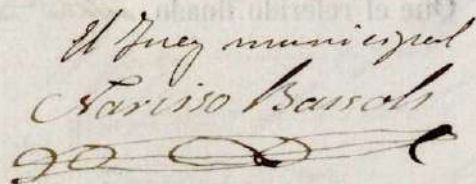 Que el referido finado
El Juez municipal
Narciso Bassols